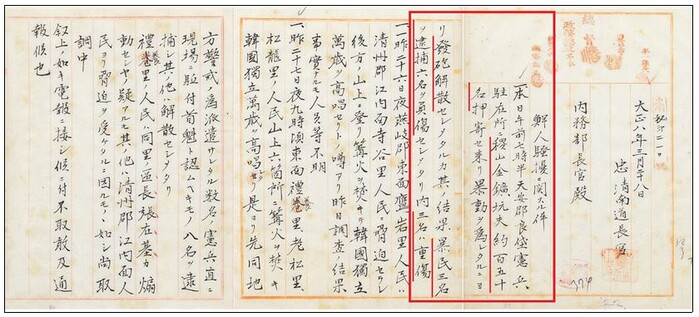 大正八年三月二十八日
忠清南道長官
内務部長官殿
鮮人騒擾ニ関スル件
本日午前七時半天安郡良垈憲兵
駐在所ニ稷山金鑛坑夫約百五十
名押寄セ来リ暴動ヲ為シタルニヨ
リ發砲解散セシメタルカ其ノ結果暴民三名
ヲ逮捕六名ヲ負傷セシメタリ内三名ハ重傷
一、昨二十六日夜燕岐郡東面鷹岩里人民ハ
清州郡江内面寺谷里人民ニ脅迫セラレ
後方ノ山上ニ登リ篝火ヲ焚キ韓國獨立
萬歳ヲ高唱セシトノ噂アリ昨日調査ノ結果
事實ナルモ人員等不明
一、昨二十七日夜九時頃東面禮養里老松里
松龍里人民山上六箇所ニ篝火ヲ焚キ
韓國獨立萬歳ヲ高唱セリ是ヨリ先同地
方警戒ノ為派遣シタル数名ノ憲兵直ニ
現場ニ馳付首魁ト認ムヘキモノ八名ヲ逮
捕シ其ノ他ハ解散セシメタリ
禮養里ノ人民ハ同里區長張在基カ煽
動セシヤノ疑アルモ其ノ他ハ清州郡江内面人
民ヨリ脅迫ヲ受ケタルニ因ルモノノ如シ尚取
調中
叙上ノ如キ電報ニ接シ候ニ付不取敢及通
報候也